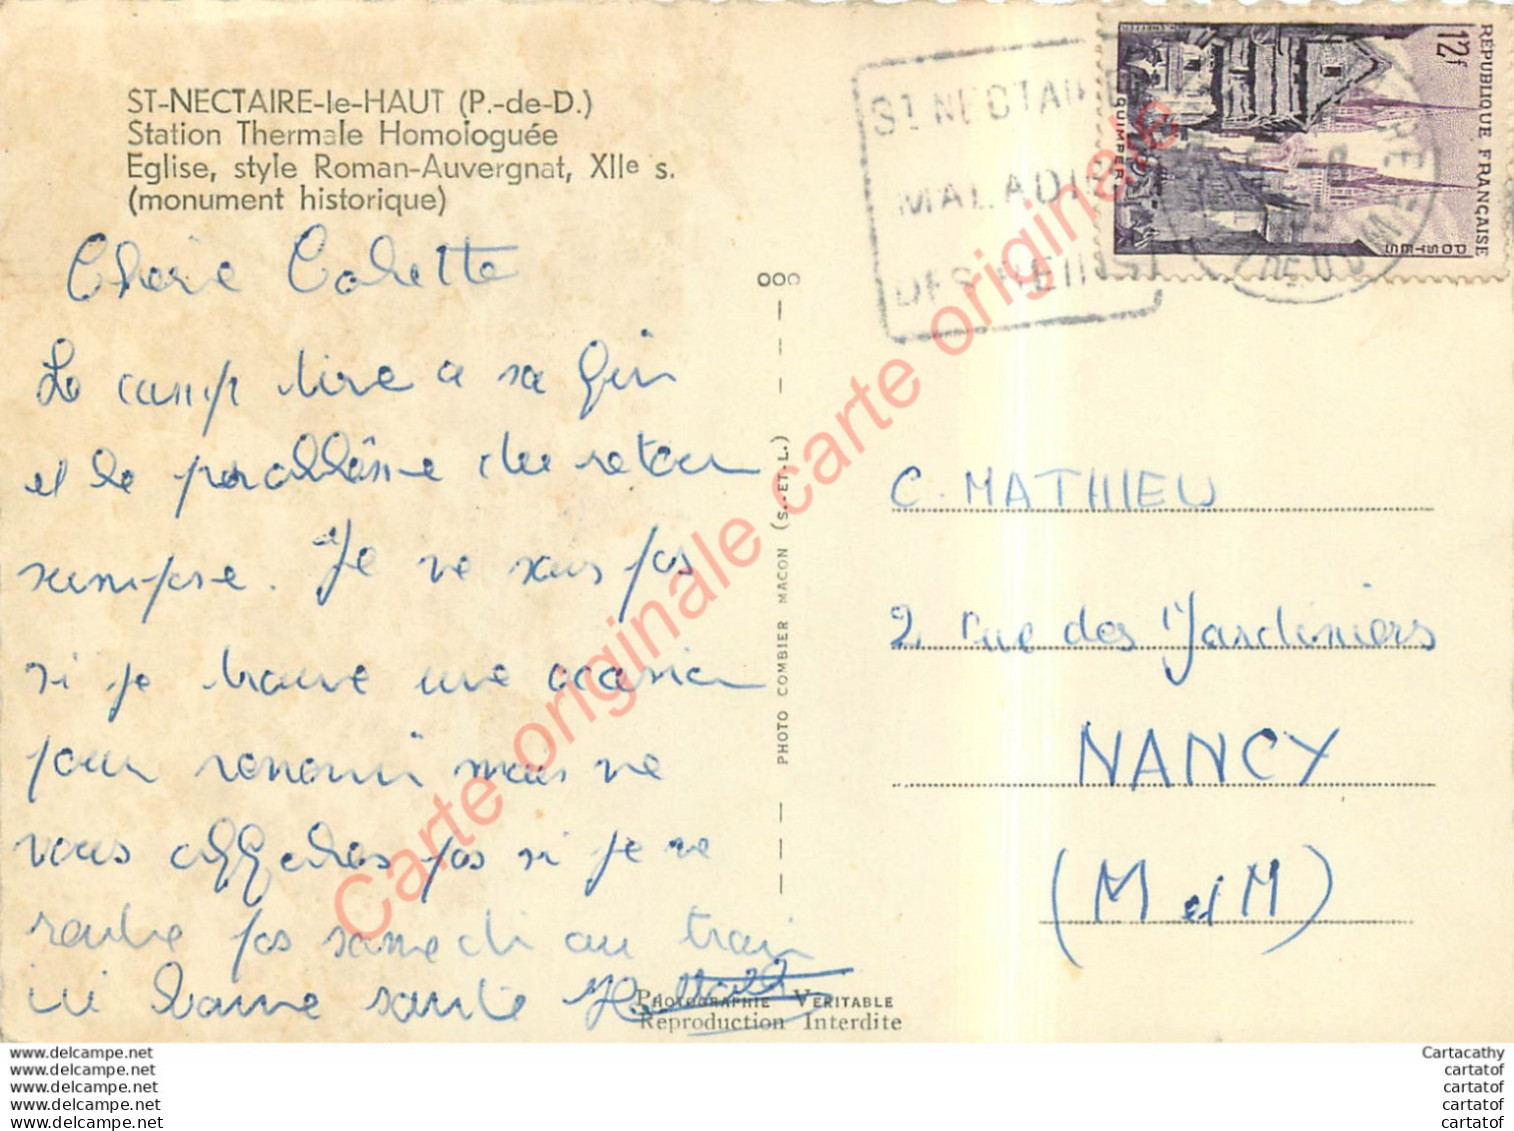 ST-NECTAIRE-le-HAUT (P.-de-D.)
Station Thermale Homologuée
Eglise, style Roman-Auvergnat, XIIe s.
(monument historique)
Chérie Colette
Le camp tire a sa fin
et le problème du retour
se pose. Je ne sais pas
si je trouve une occasion
pour revenir mais ne
vous affolez pas si je ne
rentre pas samedi au train
ici bonne santé
PHOTO COMBIER MACON (S.-ET-L.)
PHOTOGRAPHIE VERITABLE
Reproduction Interdite
ST NECTAIRE
MALADIES
DES REINS
REPUBLIQUE FRANÇAISE
12f
POSTES
QUIMPER
C. MATHIEU
2 rue des Jardiniers
NANCY
(M et M)
Carte originale carte originale
www.delcampe.net
www.delcampe.net
www.delcampe.net
www.delcampe.net
www.delcampe.net
Cartacathy
cartatof
cartatof
cartatof
cartatof